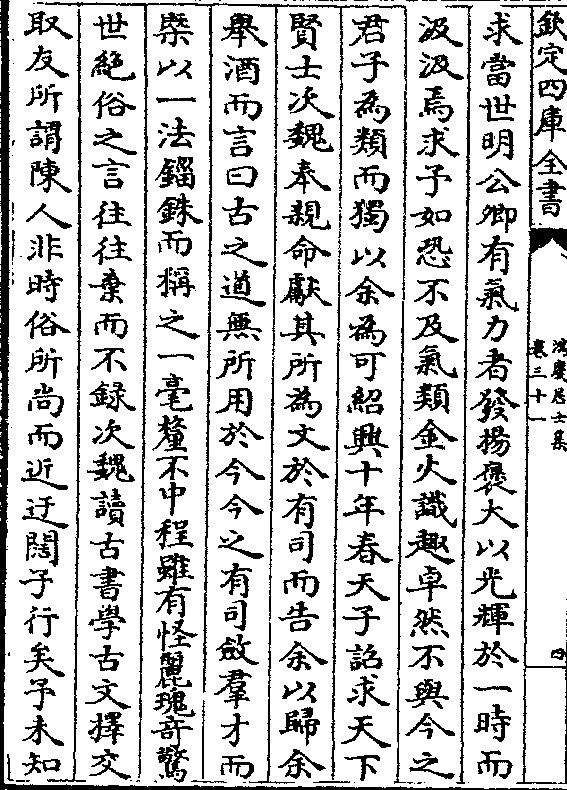 欽定四庫全書
鴻慶居士集
卷三十一
四
求當世明公卿有氣力者發揚褒大以光輝於一時而
汲汲焉求予如恐不及氣類金火識趣卓然不與今之
君子為類而獨以余為可紹興十年春天子詔求天下
賢士次魏奉親命獻其所為文於有司而告余以歸余
舉酒而言曰古之道無所用於今今之有司斂羣才而
槩以一法錙銖而稱之一毫釐不中程雖有怪麗瑰奇驚
世絕俗之言往往棄而不錄次魏讀古書學古文擇交
取友所謂陳人非時俗所尚而近迂闊子行矣予未知